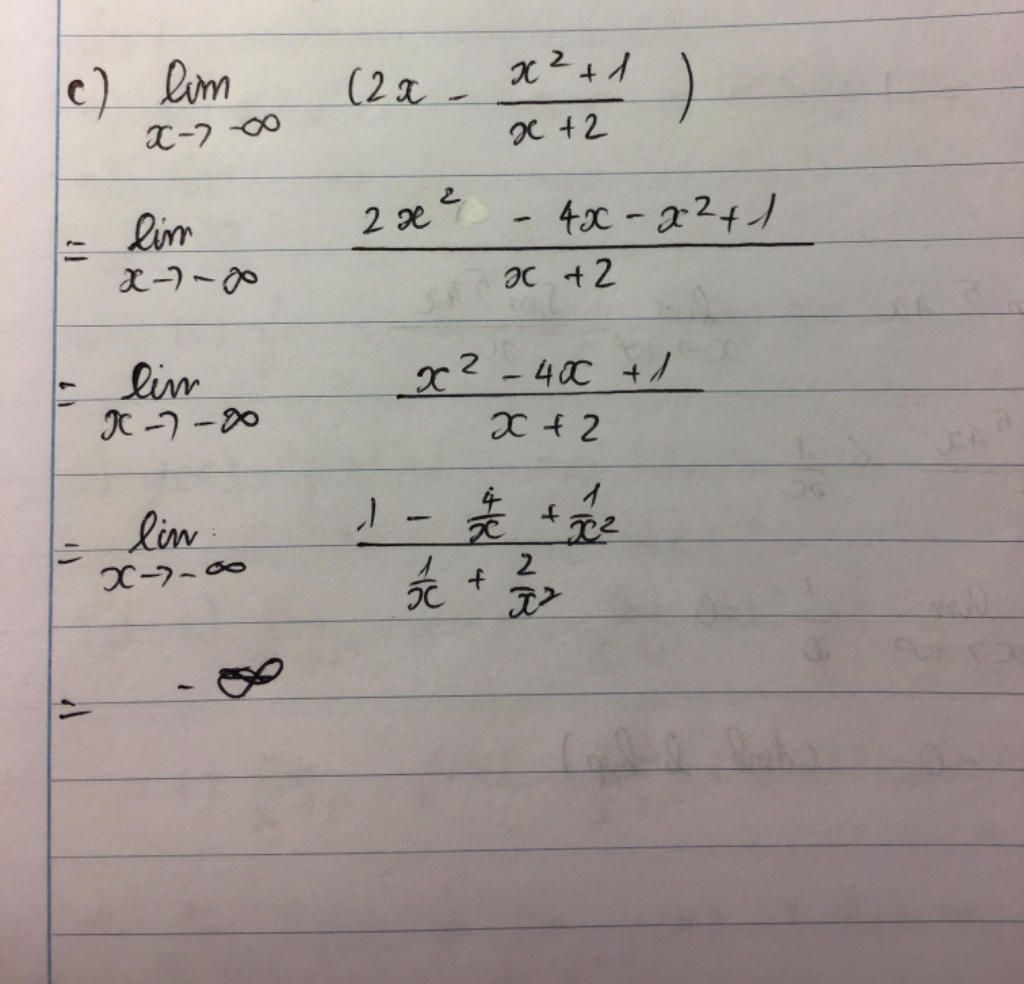 c) lim x→-∞ (2x - (x²+1)/(x+2))
= lim x→-∞ (2x² - 4x - x²+1)/(x+2)
= lim x→-∞ (x² - 4x +1)/(x+2)
= lim x→-∞ (1 - 4/x + 1/x²)/(1/x + 2/x²)
= -∞